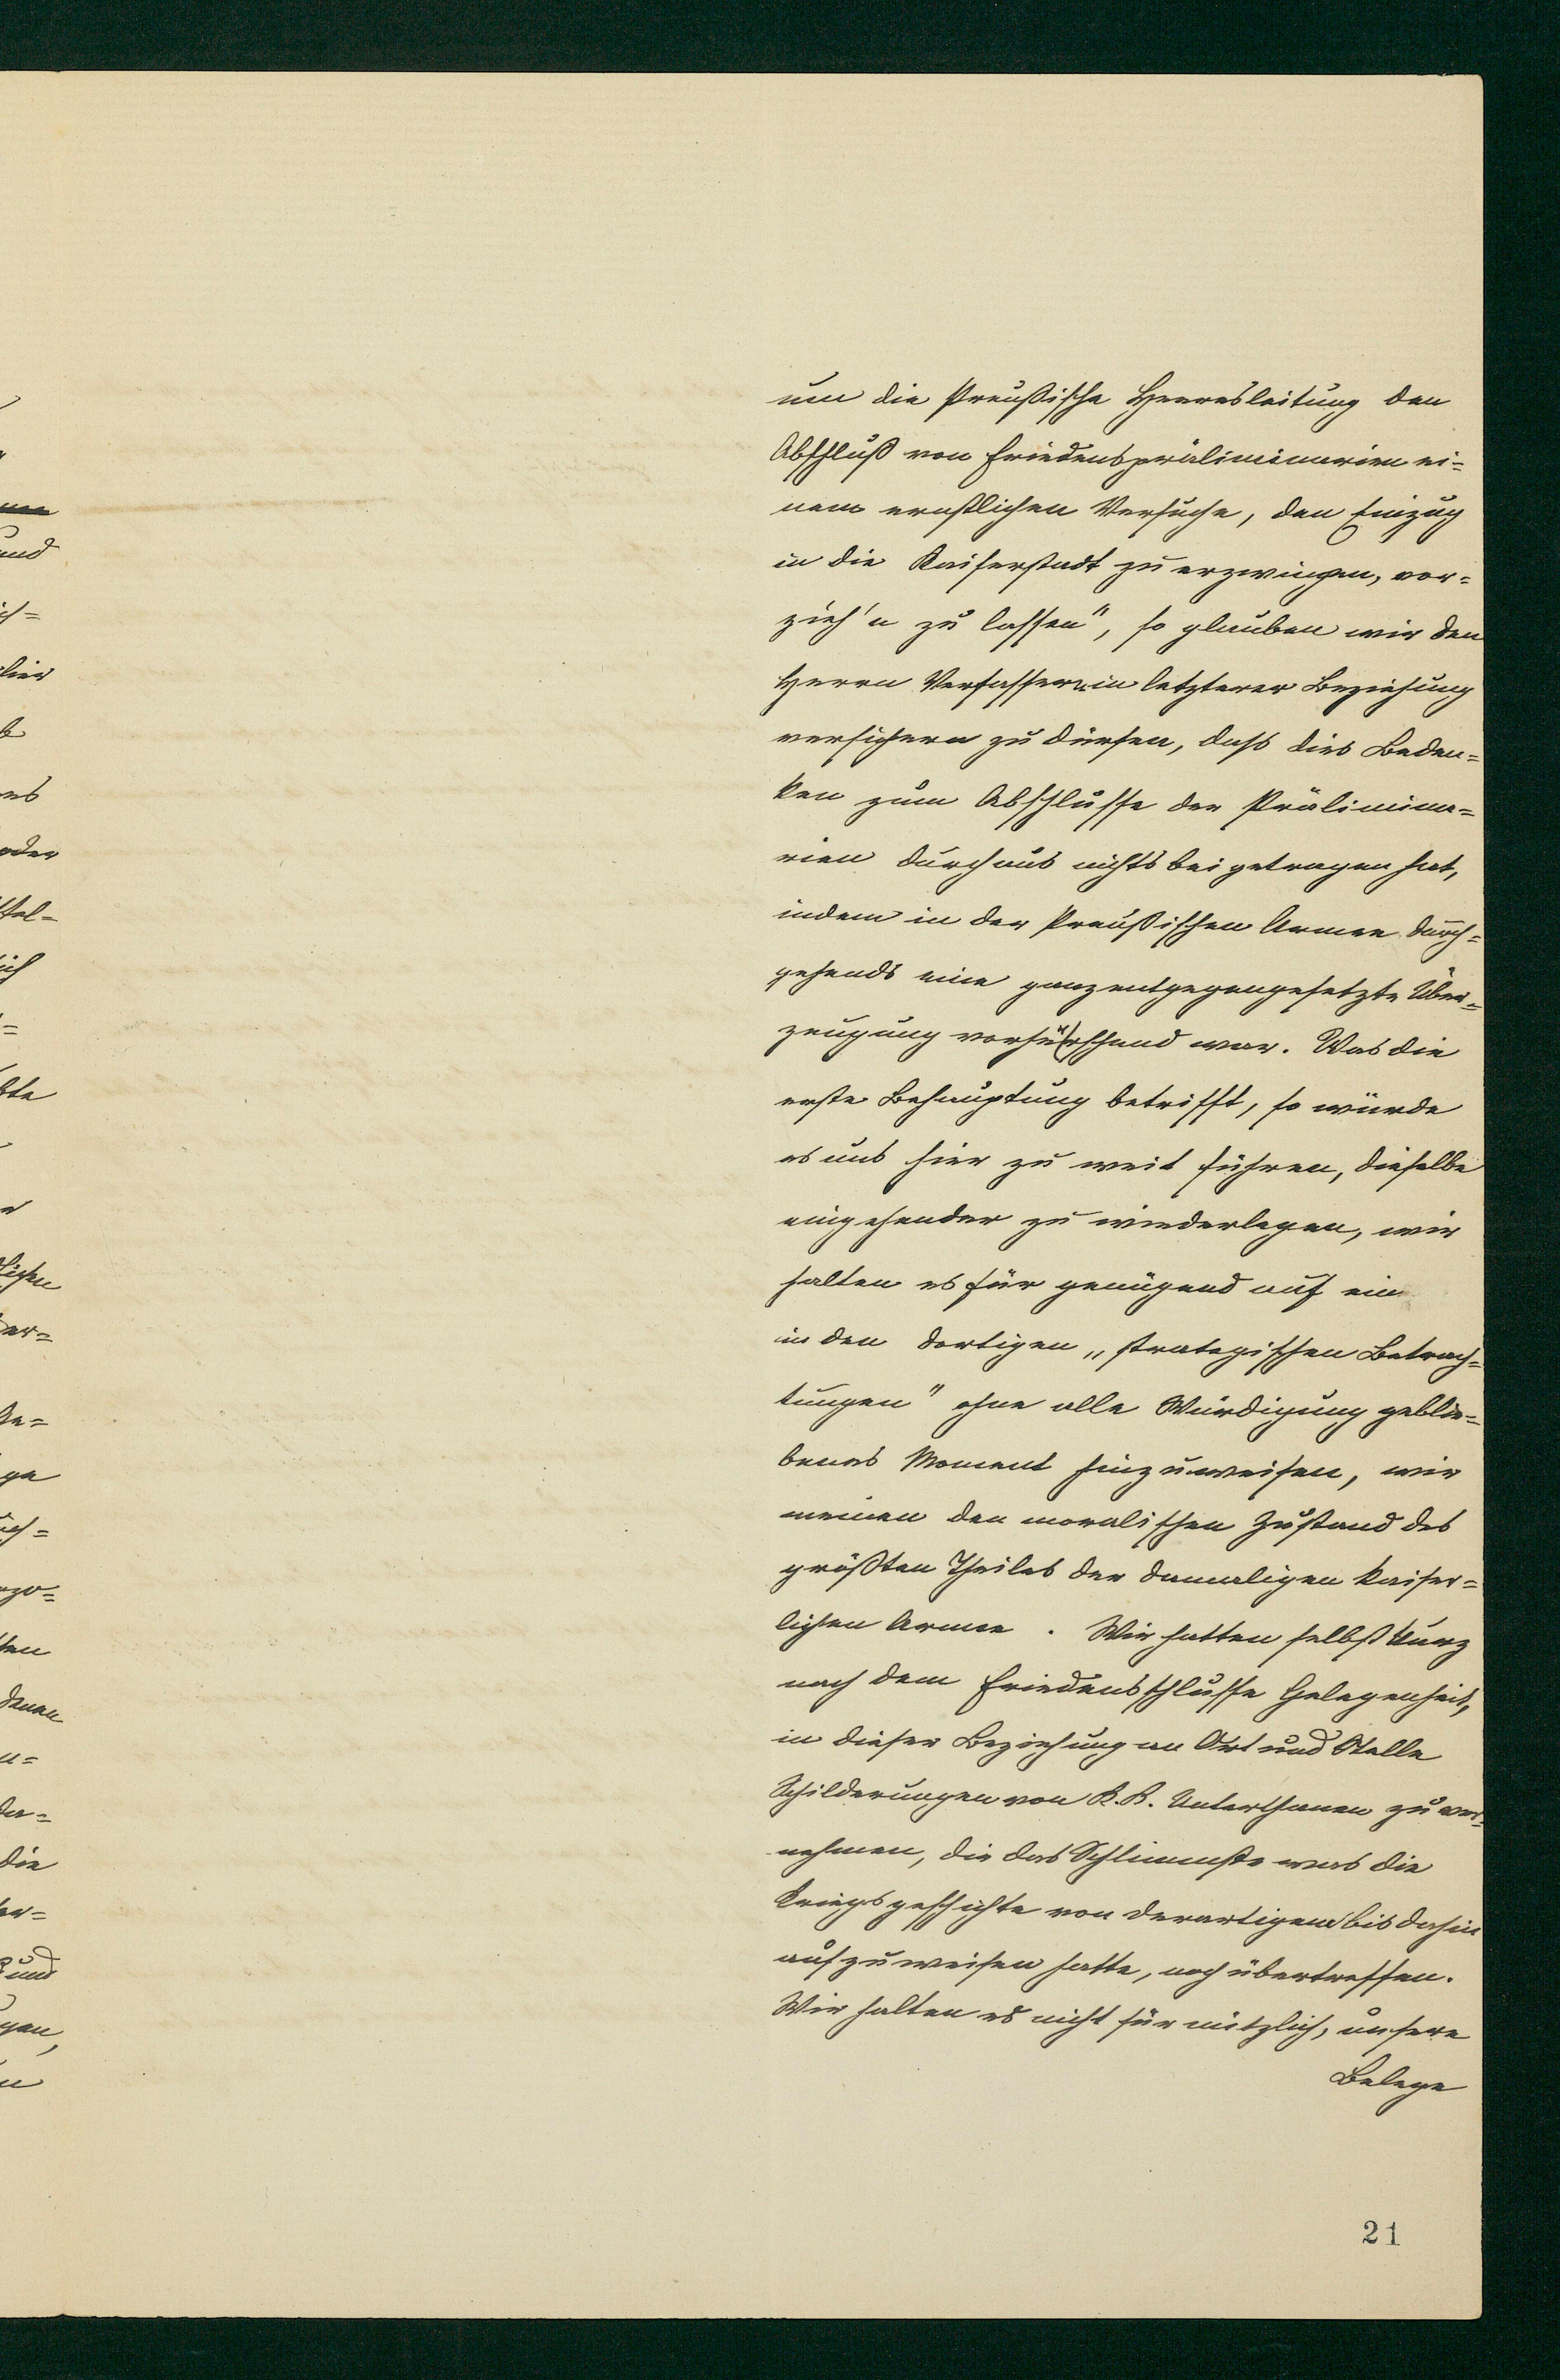 um die Preußische Heeresleitung den
Abschluß von Friedenspräliminarien ei=
nem ernstlichen Versuche, den Einzug
in die Kaiserstadt zu erzwingen, vor=
zieh'n zu lassen", so glauben wir den
Herrn Verfasser in letzterer Beziehung
versichern zu dürfen, dass dies Beden=
ken zum Abschlusse der Prälimina=
rien durchaus nichts beigetragen hat,
indem in der Preußischen Armee durch=
gehends eine ganz entgegengesetzte Über=
zeugung vorherrschend war. Was die
erste Behauptung betrifft, so würde
es uns hier zu weit führen, dieselbe
eingehender zu wiederlegen, wir
halten es für genügend auf ein
in den dortigen „strategischen Betrach=
tungen" ohne alle Würdigung geblie=
benes Moment hinzuweisen, wir
meinen den moralischen Zustand des
größten Theiles der damaligen Kaiser=
lichen Armee. Wir hatten selbst kurz
nach dem Friedensschlusse Gelegenheit,
in dieser Beziehung an Ort und Stelle
Schilderungen von K. K. Unterthanen zu ver=
nehmen, die das Schlimmste was die
Kriegsgeschichte von derartigem bis dahin
aufzuweisen hatte, noch übertreffen.
Wir halten es nicht für nützlich, unsere
Belege
21